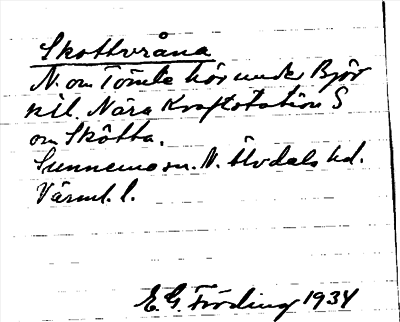 Skottvråna
N. om Tömte hör under Björ
kil. Nära Kraftstation S
om Skötta.
Sunnemo sn. N. Älvdals hd.
Värml. l.
E. G. Fröding 1934